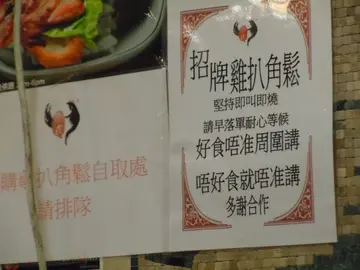 招牌雞扒角鬆
堅持即叫即燒
請早落單耐心等候
好食唔准周圍講
唔好食就唔准講
多謝合作
扒角鬆自取處
請排隊